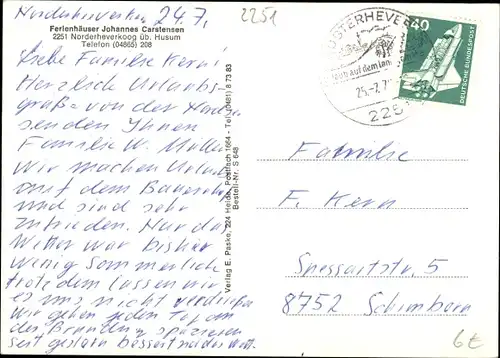 Norderheverkoog 24.7.
2251
Ferienhäuser Johannes Carstensen
2251 Norderheverkoog üb. Husum
Telefon (04865) 208
Liebe Familie Kern!
Herzliche Urlaubs-
grüße von der Nordsee
senden Ihnen
Familie W. Müller
Wir machen Urlaub
auf dem Bauernhof
und sind sehr
zufrieden. Nur das
Wetter war bisher
wenig sommerlich
trotzdem lassen wir
es uns nicht verdrießen
wir gehen jeden Tag an
der Brandung spazieren
seit gestern bessert sich das Wett.
Verlag E. Paske, 224 Heide, Postfach 1664 - Tel. (0481) 8 73 83
Bestell-Nr. S 648
OSTERHEVER
auf dem Lan
25.-7.7
225
40
DEUTSCHE BUNDESPOST
Familie
F. Kern
Spessartstr. 5
8752 Schimborn
6€